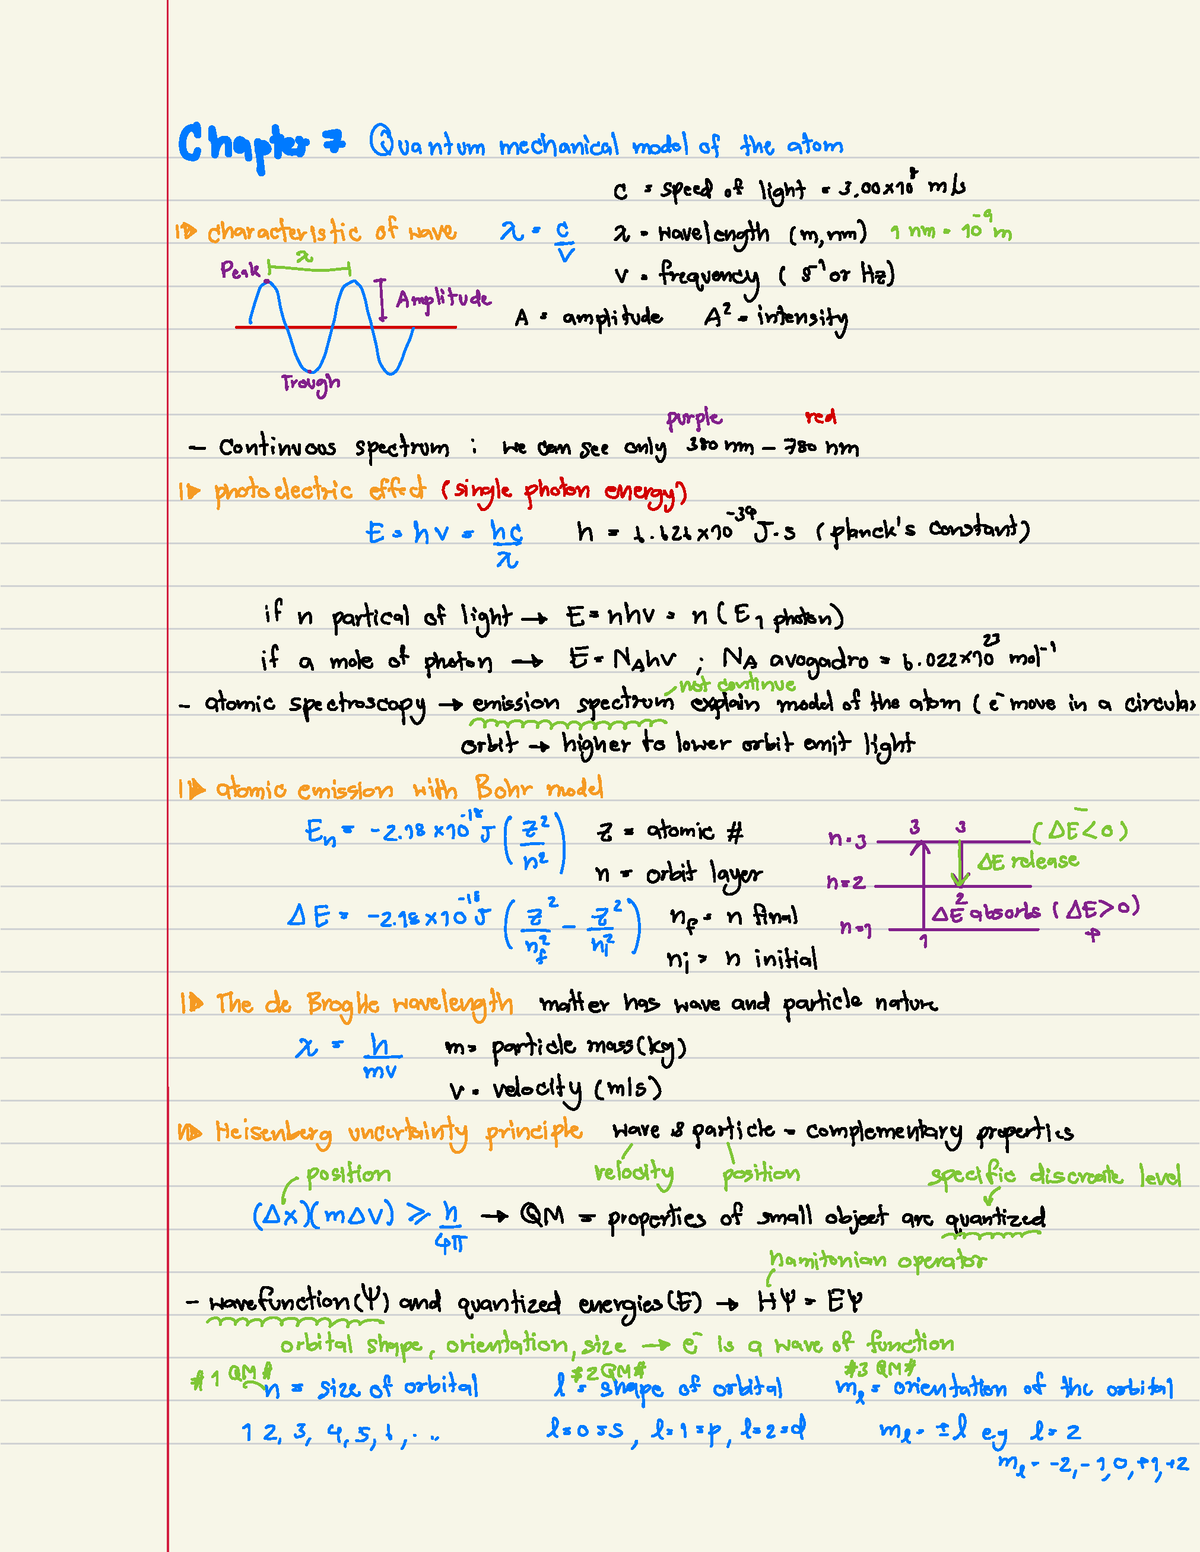 Chapter 7 Quantum mechanical model of the atom
c = speed of light = 3.00×10⁸ m/s
characteristic of wave λ = c/ν λ = wavelength (m, nm) 1 nm = 10⁻⁹ m
Peak λ Amplitude ν = frequency ( s⁻¹ or Hz)
A = amplitude A² = intensity
Trough
purple red
– Continuous spectrum : we can see only 380 nm – 780 nm
photoelectric effect (single photon energy)
E = hν = hc/λ h = 6.626×10⁻³⁴ J·s (planck's constant)
if n partical of light → E = nhν = n (E 1 photon)
if a mole of photon → E = N_A hν ; N_A avogadro = 6.022×10²³ mol⁻¹
not continue
– atomic spectroscopy → emission spectrum explain model of the atom (e⁻ move in a circular
orbit → higher to lower orbit emit light
atomic emission with Bohr model
Eₙ = -2.18×10⁻¹⁸ J (Z²/n²) Z = atomic # n=3 3 3 (ΔE<0) –
n = orbit layer n=2 ΔE release
ΔE = -2.18×10⁻¹⁸ J (Z²/n_f² – Z²/n_i²) n_f = n final 2 ΔE absorbs (ΔE>0) +
n_i = n initial n=1 1
The de Broglie wavelength matter has wave and particle nature
λ = h/mv m = particle mass (kg)
v = velocity (m/s)
Heisenberg uncertainty principle wave & particle = complementary properties
position velocity position specific discreate level
(Δx)(mΔv) ≥ h/4π → QM = properties of small object are quantized
hamitonian operator
– wavefunction(Ψ) and quantized energies(E) → HΨ = EΨ
orbital shape, orientation, size → e⁻ is a wave of function
#1 QM# #2 QM# #3 QM#
n = size of orbital l = shape of orbital m_l = orientation of the orbital
1 2, 3, 4, 5, 6, . .. l=0=s, l=1=p, l=2=d m_l = ±l eg l=2
m_l = -2,-1,0,+1,+2